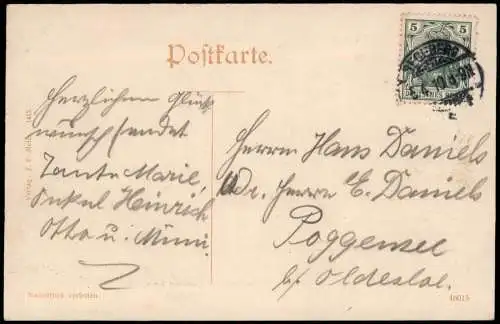 Postkarte.
Herzlichen Glück
wunsch sendet
Tante Marie,
Onkel Heinrich
Otto u. Mimi.
Herrn Hans Daniels
Adr. Herrn E. Daniels
Poggensee
bei Oldesloe.
5
5
Nachdruck verboten.
46015